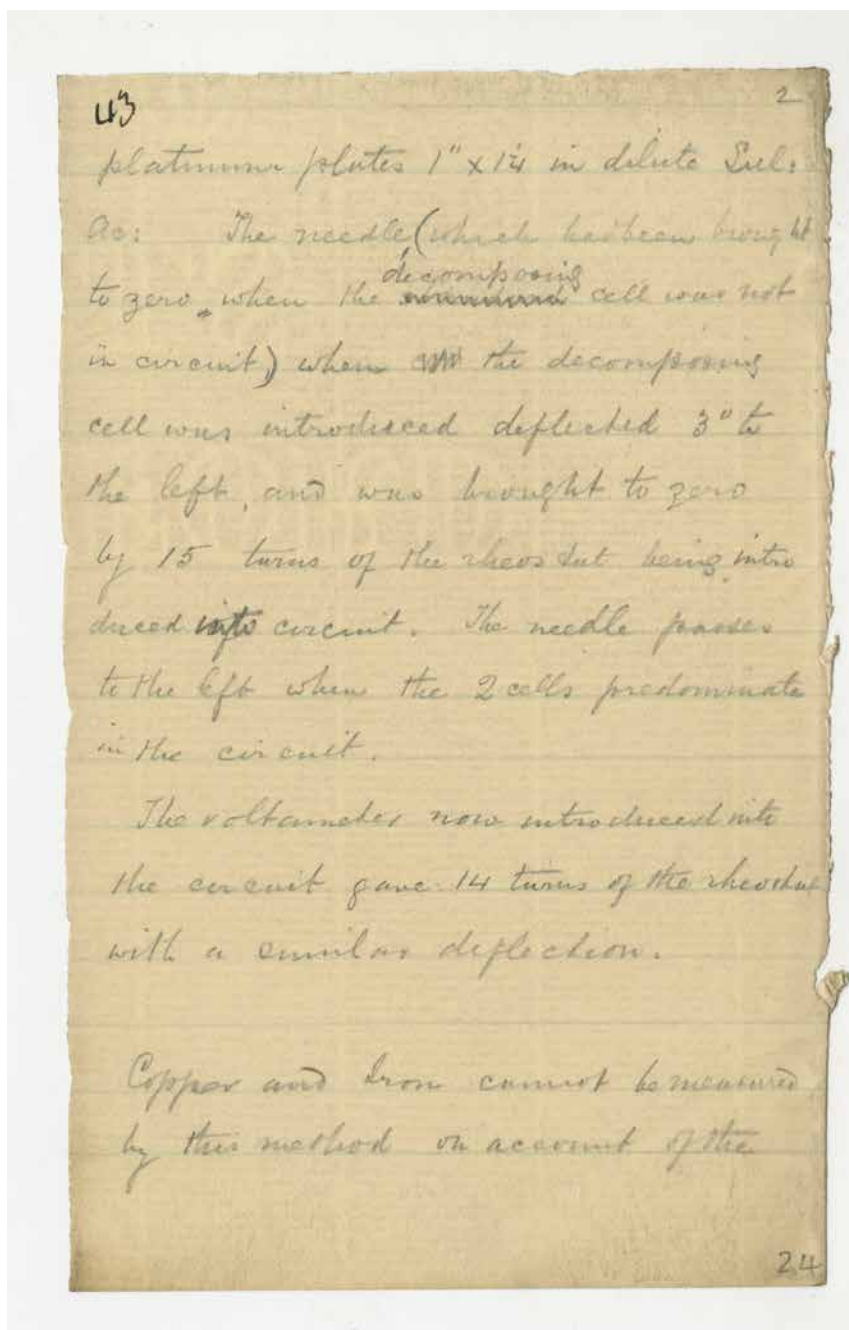 43
2
platinum plates 1" x 1¼ in dilute Sul.
Ac: The needle, (which has been brought
to zero, when the decomposing cell was not
in circuit) when the decomposing
cell was introduced deflected 3° to
the left, and was brought to zero
by 15 turns of the rheostat being intro
duced into circuit. The needle passes
to the left when the 2 cells predominate
in the circuit.
The voltameter now introduced into
the circuit gave 14 turns of the rheostat
with a similar deflection.
Copper and Iron cannot be measured
by this method on account of the
24